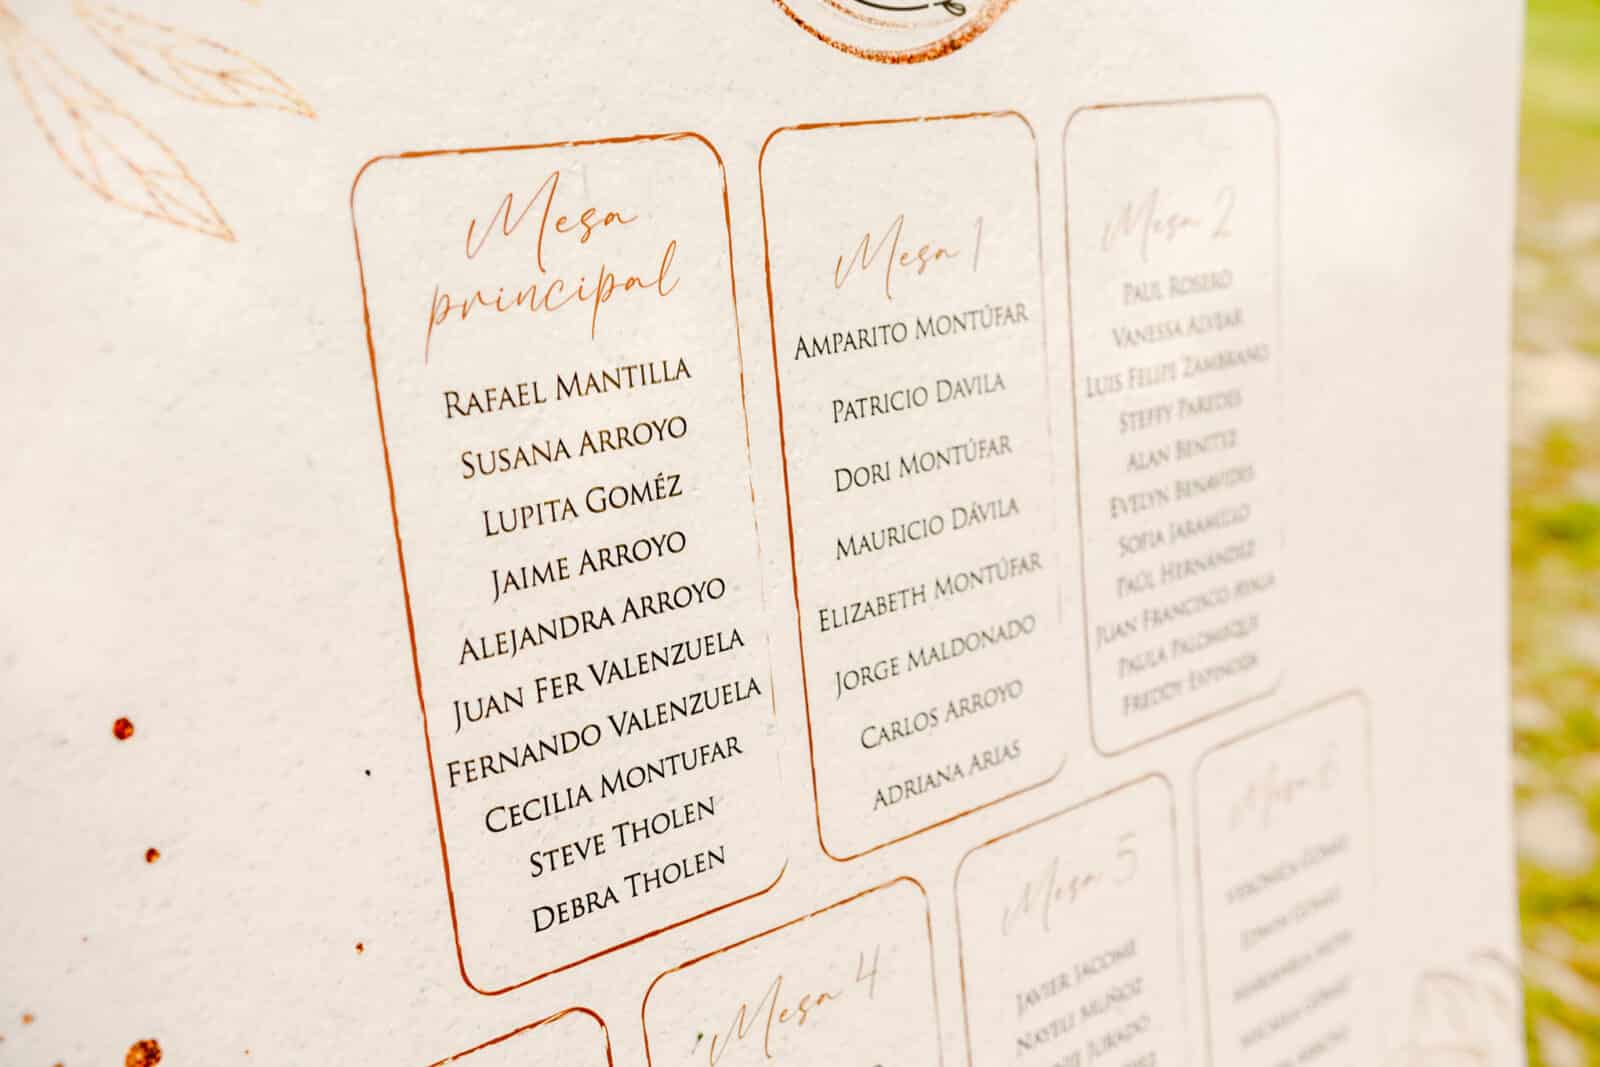 Mesa
principal
RAFAEL MANTILLA
SUSANA ARROYO
LUPITA GOMÉZ
JAIME ARROYO
ALEJANDRA ARROYO
JUAN FER VALENZUELA
FERNANDO VALENZUELA
CECILIA MONTUFAR
STEVE THOLEN
DEBRA THOLEN
Mesa 1
AMPARITO MONTÚFAR
PATRICIO DAVILA
DORI MONTÚFAR
MAURICIO DÁVILA
ELIZABETH MONTÚFAR
JORGE MALDONADO
CARLOS ARROYO
ADRIANA ARIAS
Mesa 2
PAUL ROSERO
VANESSA
LUIS FELIPE ZAMBRANO
STEFFY PAREDES
ALAN BENITEZ
EVELYN BENAVIDES
SOFIA JARAMILLO
PAÚL HERNÁNDEZ
JUAN FRANCISCO AYALA
PAULA
FREDDY ESPINOSA
Mesa 4
Mesa 5
JAVIER JACOME
NAYELI MUÑOZ
JURADO
Mesa 6
VERÓNICA GÓMEZ
GÓMEZ